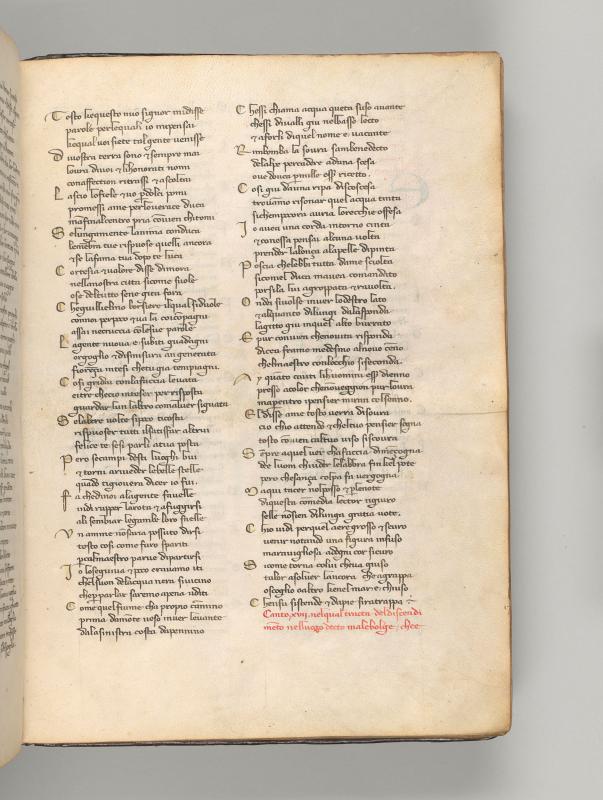 Tosto kequesto mio signor midisse
parole perlequali io mipensai
kequal voi siete tal gente venisse
Di vostra terra sono & sempre mai
loura divoi & lihonorati nomi
conaffection ritrassi & ascoltai
Lascio lofiele & vo pdolci pomi
promessi ame perloverace duca
mafinalcentro pria convien chitomi
Se lungamente lanima conduca
lemebra tue rispuose quelli ancora
&se lafama tua dopo te luca
Cortesia &valore di se dimora
nellanostra citta sicome suole
ose deltutto sene gita fora
Che guillielmo borsiere ilqual siduole
connoi perpoco &va la coicompagni
assai necruccia colesue parole
La gente nuova e subiti guadagni
orgoglio &dismisura an generata
fiorença intesi chetugia tempiagni
Cosi gridai conlafaccia levata
eitre checio inteser per risposta
guardar lun laltro comalver siguata
Se laltre volte sipoco ticosta
rispuoser tutti ilsatisfar altrui
felice te sesi parli atua posta
Pero secampi desti luoghi bui
& torni arriveder lebelle stelle
quado tigiovera dicer io fui
Fa chedinoi alagente favelle
indi rupper larota & afuggirsi
ali sembiar legambe loro snelle
Un amme nosaria possuto dirsi
tosto cosi come furo spariti
pcalmaestro parve dipartirsi
Io loseguiva & poco eravamo iti
chelsuon delacqua nera sivicino
chepparlar saremo apena uditi
Come quelfiume cha proprio camino
prima damonte veso inver levante
dalasinistra costa dapennino
Chessi chiama acqua queta suso avante
chessi divalli giu nelbasso lecto
& aforli diquel nome e vacante
Rimbomba la sovra sambenedecto
delalpe percadere aduna scesa
ove dovea pmille esser ricetto
Cosi giu duna ripa discoscesa
trovamo risonar quel acqua tinta
sichempocora auria lorecchie offesa
Io avea una corda intorno cinta
& conessa pensai alcuna volta
prender lalonça alapelle dipinta
Poscia chelebbi tutta dame sciolta
sicomel duca mavea comandato
porsila lui agroppata &ravolta
Ondei sivolse inver lodestro lato
& alquanto dilungi dalasponda
lagitto giu inquel alto burrato
E pur convien chenovita risponda
dicea framo medesmo alnovo ceno
chelmaestro conlocchio siseconda
Ay quato cauti lihuomini esser dienno
presso acolor chenoveggion pur lovra
mapentro ipensier miran colsenno
El disse ame tosto verra disovra
cio chio attendo & cheltuo pensier sogna
tosto convien caltuo viso siscovra
Sepre aquel ver chafaccia dimeçogna
de luom chiuder lelabbra fin kel pote
pero chesança colpa fa vergogna
Ma qui tacer nolposso & plenote
diquesta comedia lector tigiuro
selle nosien dilunga gratia vote
Chio vidi perquel aere grosso & scuro
venir notando una figura insuso
maravigliosa adogni cor sicuro
Si come torna colui cheva giuso
talor asolver lancora che agrappa
oscoglio oaltro kenel mar e chiuso
Chensu sistende & dapie sirattrappa
Canto .xvii. nelqual tracta del discendi
mento nelluogo decto malebolge, chee